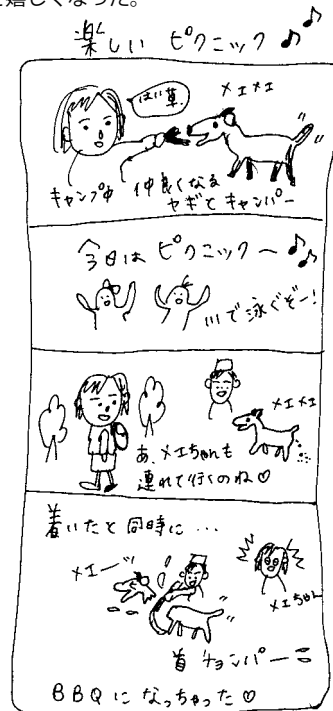 嬉しくなった。
楽しい ピクニック♪♪
はい草
メエメエ
キャンプ中 仲良くなる
ヤギと キャンパー
今日は ピクニック〜♪♪
川で泳ぐぞー!
メエメエ
あ、メエちゃんも
連れて行くのね♡
着いたと同時に…
メエーッ
メエちゃん
首チョンパー
BBQ になっちゃった♡